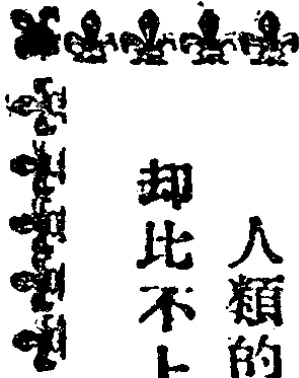 人類的
却比不